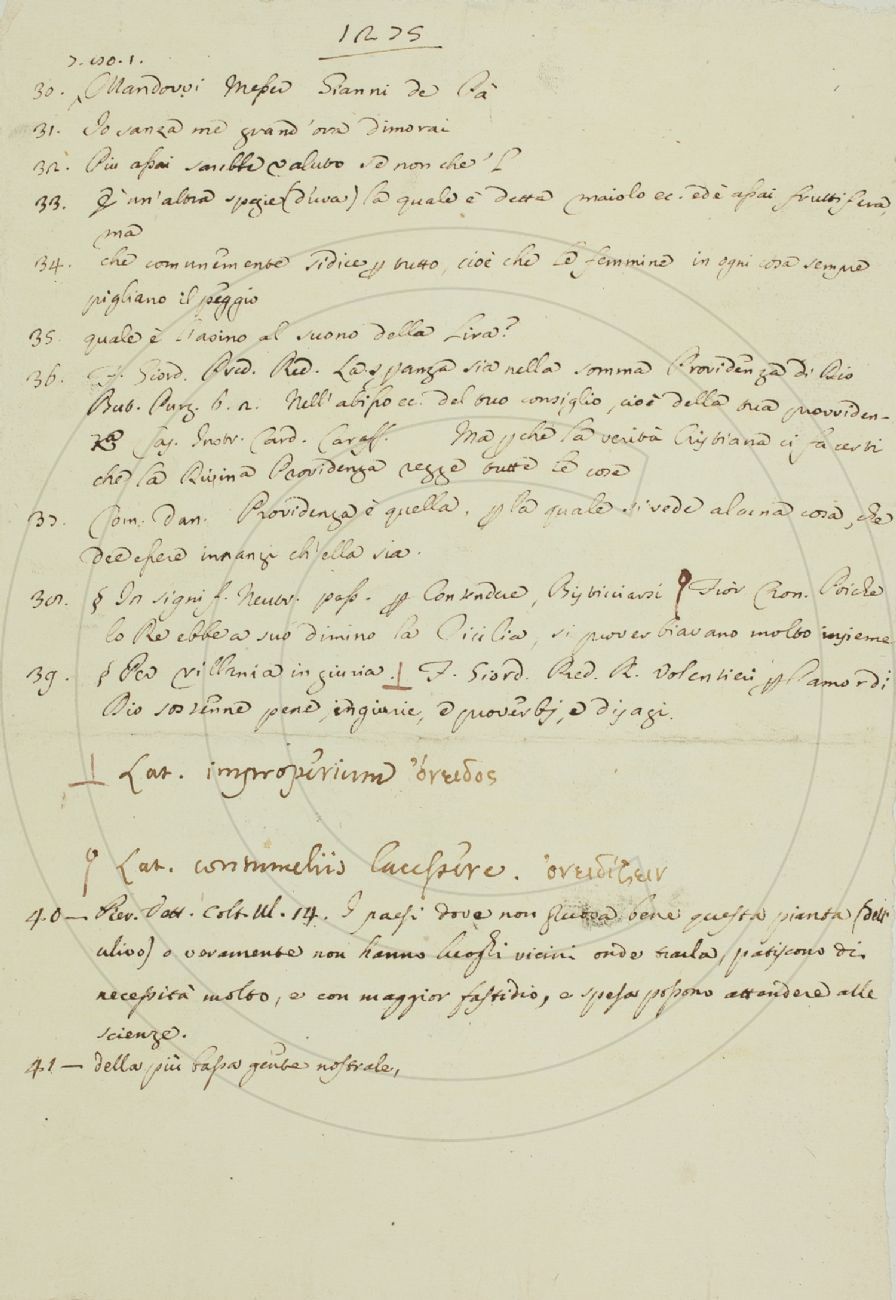 1275
30. Mandovvi Messer Gianni de Pà
31. Io sanza me grand'ora dimorai
32. Più assai sarebbe valuto se non che 'l
33. È un'altra spezie (d'uva) la quale è detta maiolo ec. ed è assai fruttifera,
ma
34. che comunemente si dice p tutto, cioè che le femmine in ogni cosa sempre
pigliano il peggio
35. quale è l'asino al suono della Lira?
36. F. Giord. Pred. Red. La spanza sia nella somma Providenza di Dio
But. Purg. 6. 2. Nell'abisso ec. del tuo consiglio, cioè della tua provviden-
za Cas. Instr. Card. Caraff. Ma pche la verità Cristiana ci fa certi
che la Divina Providenza regge tutte le cose
37. Com. Dan. Providenza è quella, p la quale si vede alcuna cosa, che
dee essere innanzi ch'ella sia.
38. § In signif. neutr. pass. p Contendere, Bisticciarsi Stor Cron. Poichè
lo Re ebbe a suo dimino la Sicilia, si proverbiavano molto insieme
39. § Per villania ingiuria. F. Giord. Pred. R. Volentieri p l'amor di
Dio sostenne pene, ingiurie, e proverbj, e disagi.
⊥ Lat. improperium ὄνειδος
Lat. contumeliis lacessere. ὀνειδίζειν
40 — Pier. Vett. Colt. Ul. 14. I paesi dove non frutta bene questa pianta (dell'
ulivo) o veramente non hanno luoghi vicini onde trarla, patiscono di
necessità molto, e con maggior fastidio, e spesa possono attendere alle
scienze.
41 — della più bassa gente nostrale,